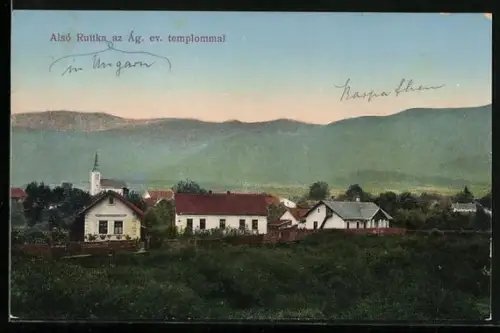 Alsó Ruttka az Ág. ev. templommal
in Ungarn
Karpathen